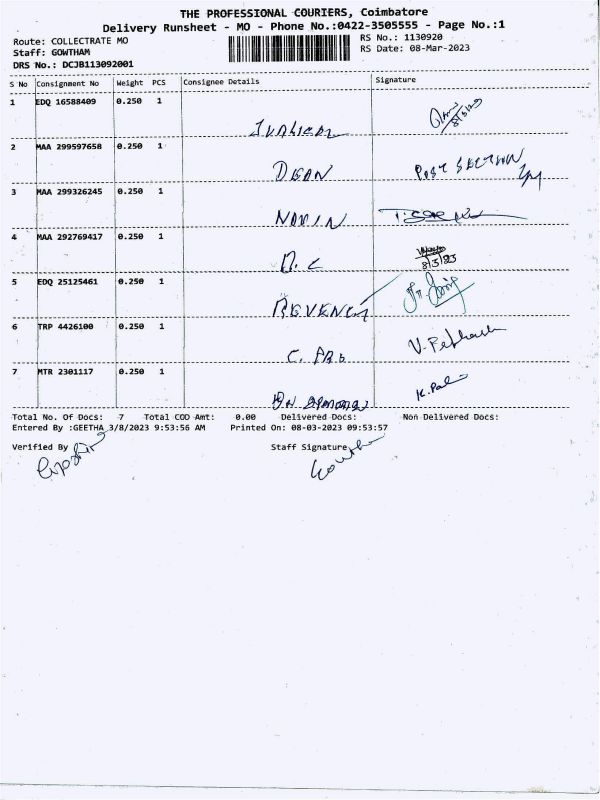 THE PROFESSIONAL COURIERS, Coimbatore
Delivery Runsheet - MO - Phone No.:0422-3505555 - Page No.:1
Route: COLLECTRATE MO
RS No.: 1130920
Staff: GOWTHAM
RS Date: 08-Mar-2023
DRS No.: DCJB113092001
S No Consignment No Weight PCS Consignee Details Signature
1 EDQ 16588409 0.250 1
8/3/23
2 MAA 299597658 0.250 1
DEAN POST SECTION
3 MAA 299326245 0.250 1
NAVIN
4 MAA 292769417 0.250 1
D.C 8/3/23
5 EDQ 25125461 0.250 1
REVENCY
6 TRP 4426100 0.250 1
7 MTR 2301117 0.250 1
Total No. Of Docs: 7 Total COD Amt: 0.00 Delivered Docs: Non Delivered Docs:
Entered By :GEETHA 3/8/2023 9:53:56 AM Printed On: 08-03-2023 09:53:57
Verified By Staff Signature